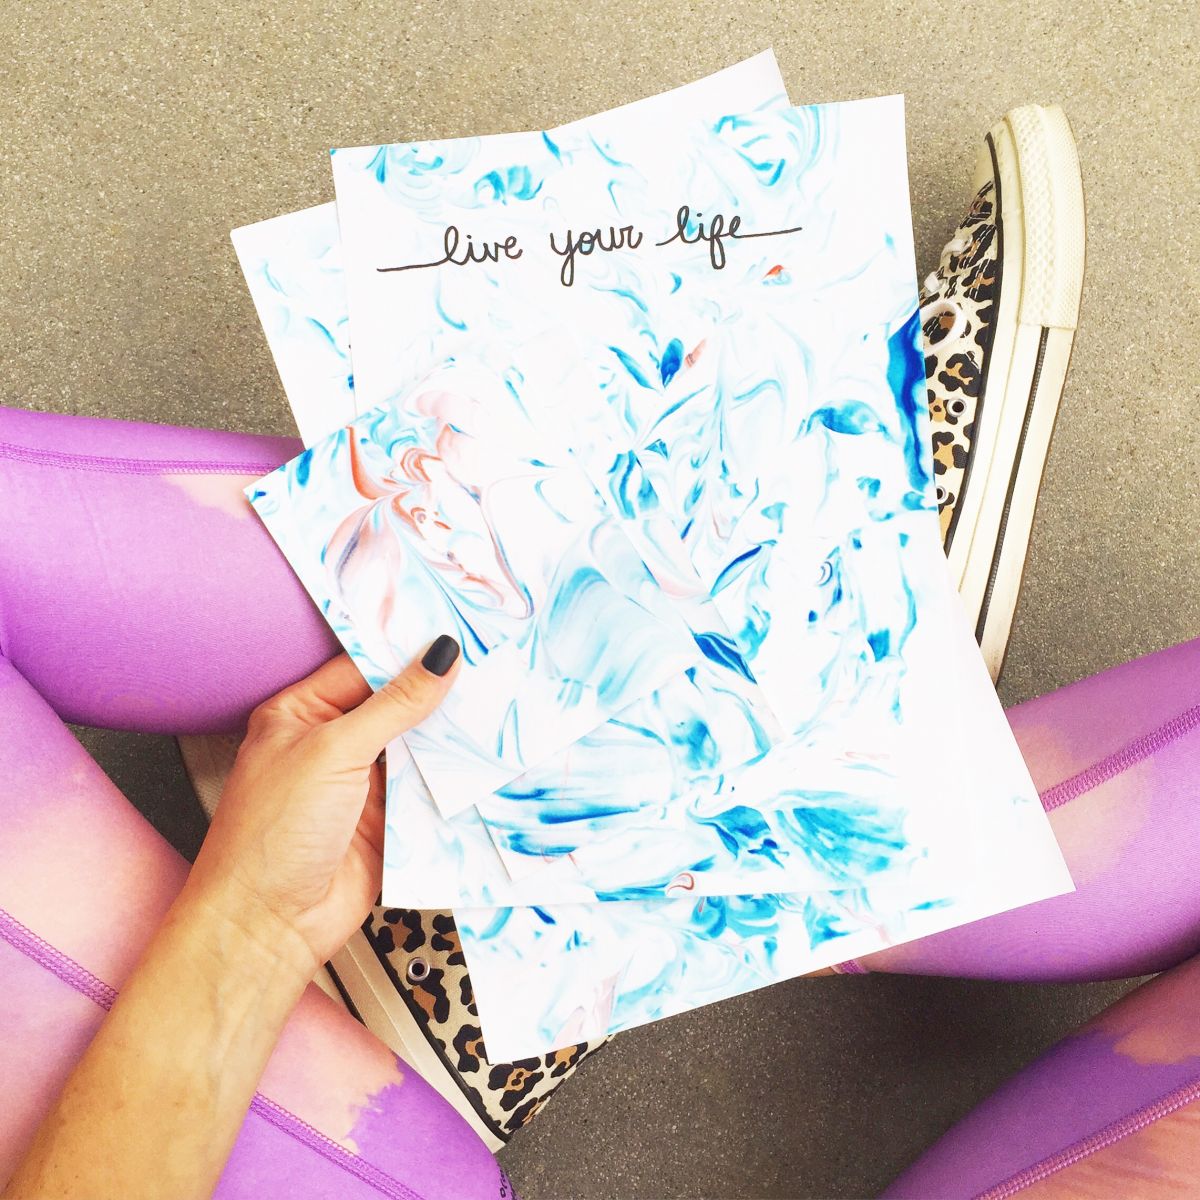 live your life